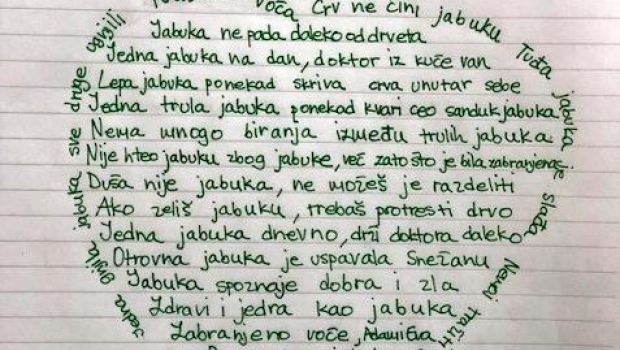 voća Crv ne čini jabuku Tuđa jabuka je slađa
Jabuka ne pada daleko od drveta
Jedna jabuka na dan, doktor iz kuće van
Lepa jabuka ponekad skriva crva unutar sebe
Jedna trula jabuka ponekad kvari ceo sanduk jabuka
Nema mnogo biranja između trulih jabuka
Nije hteo jabuku zbog jabuke, već zato što je bila zabranjena
Duša nije jabuka, ne možeš je razdeliti
Ako želiš jabuku, trebaš protresti drvo
Jedna jabuka dnevno, drži doktora daleko
Otrovna jabuka je uspavala Snežanu
Jabuka spoznaje dobra i zla
Zdravi i jedra kao jabuka
Zabranjeno voće, Adam i Eva
Jedna gnjila jabuka sve druge ognjili
Nemoj tražiti